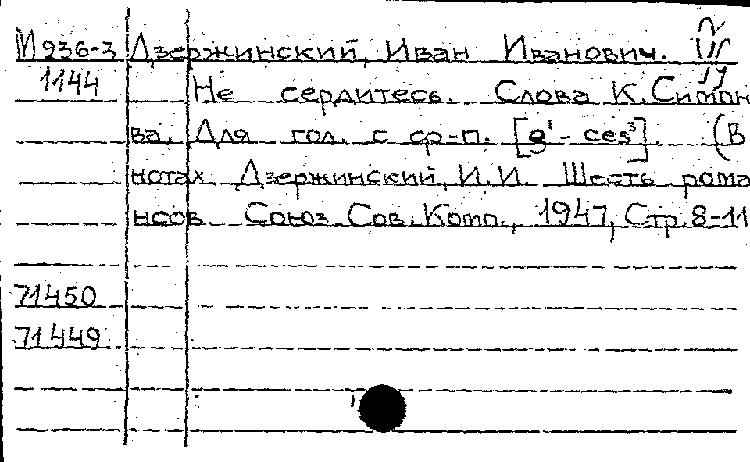 М 936-3 Дзержинский, Иван Иванович.
1144 Не сердитесь. Слова К. Симон
ва. Для гол. с ср-п. [g¹ - ces³]. (В
нотах Дзержинский, И.И. Шесть рома
нсов. Союз Сов. Комп., 1947, Стр. 8-11
71450
71449